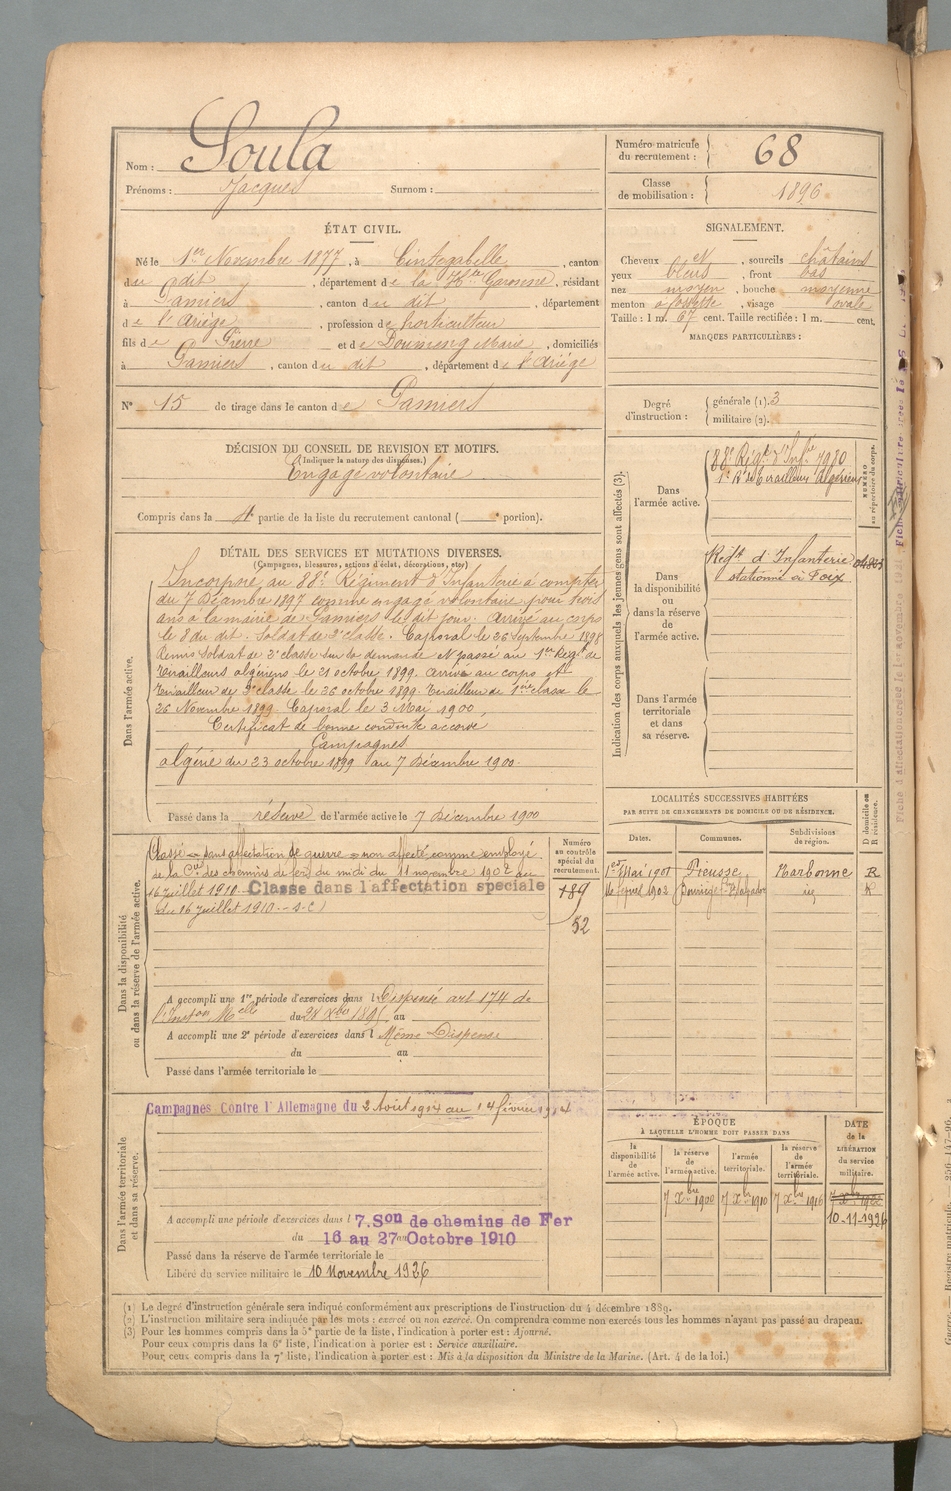 Nom : Soula
Prénoms : Jacques Surnom :
Numéro matricule du recrutement : 68
Classe de mobilisation : 1896
ÉTAT CIVIL.
Né le 1er Novembre 1877, à Cintegabelle, canton
du dit, département de la Hte Garonne, résidant
à Pamiers, canton du dit, département
de l'Ariège, profession de horticulteur
fils de Pierre et de Doumeng Marie, domiciliés
à Pamiers, canton du dit, département de l'Ariège
N° 15 de tirage dans le canton de Pamiers
SIGNALEMENT.
Cheveux et, sourcils châtains
yeux bleus, front bas
nez moyen, bouche moyenne
menton à fossette, visage ovale
Taille : 1 m. 67 cent. Taille rectifiée : 1 m. cent.
MARQUES PARTICULIÈRES :
Degré d'instruction : générale (1). 3
militaire (2).
DÉCISION DU CONSEIL DE REVISION ET MOTIFS.
(Indiquer la nature des dispenses.)
Engagé volontaire
Compris dans la 4e partie de la liste du recrutement cantonal ( e portion).
DÉTAIL DES SERVICES ET MUTATIONS DIVERSES.
(Campagnes, blessures, actions d'éclat, décorations, etc.)
Dans l'armée active.
Incorporé au 88e Régiment d'Infanterie à compter
du 7 Décembre 1897 comme engagé volontaire pour trois
ans à la mairie de Pamiers le dit jour. Arrivé au corps
le 8 du dit. Soldat de 2e classe. Caporal le 26 Septembre 1898
Remis Soldat de 2e classe sur sa demande et passé au 1er Régt de
Tirailleurs algériens le 21 octobre 1899. Arrivé au corps et
tirailleur de 2e classe le 26 octobre 1899. Tirailleur de 1ère classe le
26 Novembre 1899. Caporal le 3 Mai 1900.
Certificat de bonne conduite accordé
Campagnes
Algérie du 23 octobre 1899 au 7 Décembre 1900.
Passé dans la réserve de l'armée active le 7 Décembre 1900
Indication des corps auxquels les jeunes gens sont affectés (3).
Dans l'armée active.
88e Régt d'Infie 7980
1er Rt de Tirailleurs Algériens
NUMÉRO au répertoire du corps.
Dans la disponibilité ou dans la réserve de l'armée active.
Régt d'Infanterie
stationné à Foix
Dans l'armée territoriale et dans sa réserve.
Dans la disponibilité ou dans la réserve de l'armée active.
Classé dans affectation de guerre non affecté comme employé
de la Cie des chemins de fer du midi du 11 novembre 1902 au
16 juillet 1910 Classe dans l'affectation speciale
du 16 juillet 1910 - S.C)
Numéro au contrôle spécial du recrutement.
789
52
A accompli une 1re période d'exercices dans l Dispensé art 174 de
l'Inston Melle du 28 Xbre 1895 au
A accompli une 2e période d'exercices dans l Même Dispense
du au
Passé dans l'armée territoriale le
LOCALITÉS SUCCESSIVES HABITÉES
PAR SUITE DE CHANGEMENTS DE DOMICILE OU DE RÉSIDENCE.
Dates. Communes. Subdivisions de région. D domicile ou R résidence.
1er Mai 1901 Narbonne R
1902 R
Dans l'armée territoriale et dans sa réserve.
Campagnes Contre l'Allemagne du 2 Août 1914 au 14 février
A accompli une période d'exercices dans l 7. Son de chemins de Fer
du 16 au 27 Octobre 1910
Passé dans la réserve de l'armée territoriale le
Libéré du service militaire le 10 Novembre 1926
ÉPOQUE
À LAQUELLE L'HOMME DOIT PASSER DANS
la disponibilité de l'armée active.
la réserve de l'armée active.
l'armée territoriale.
la réserve de l'armée territoriale.
DATE de la LIBÉRATION du service militaire.
7 Xbre 1900 7 Xbre 1910 7 Xbre 1916
10-11-1926
(1) Le degré d'instruction générale sera indiqué conformément aux prescriptions de l'instruction du 4 décembre 1889.
(2) L'instruction militaire sera indiquée par les mots : exercé ou non exercé. On comprendra comme non exercés tous les hommes n'ayant pas passé au drapeau.
(3) Pour les hommes compris dans la 5e partie de la liste, l'indication à porter est : Ajourné.
Pour ceux compris dans la 6e liste, l'indication à porter est : Service auxiliaire.
Pour ceux compris dans la 7e liste, l'indication à porter est : Mis à la disposition du Ministre de la Marine. (Art. 4 de la loi.)